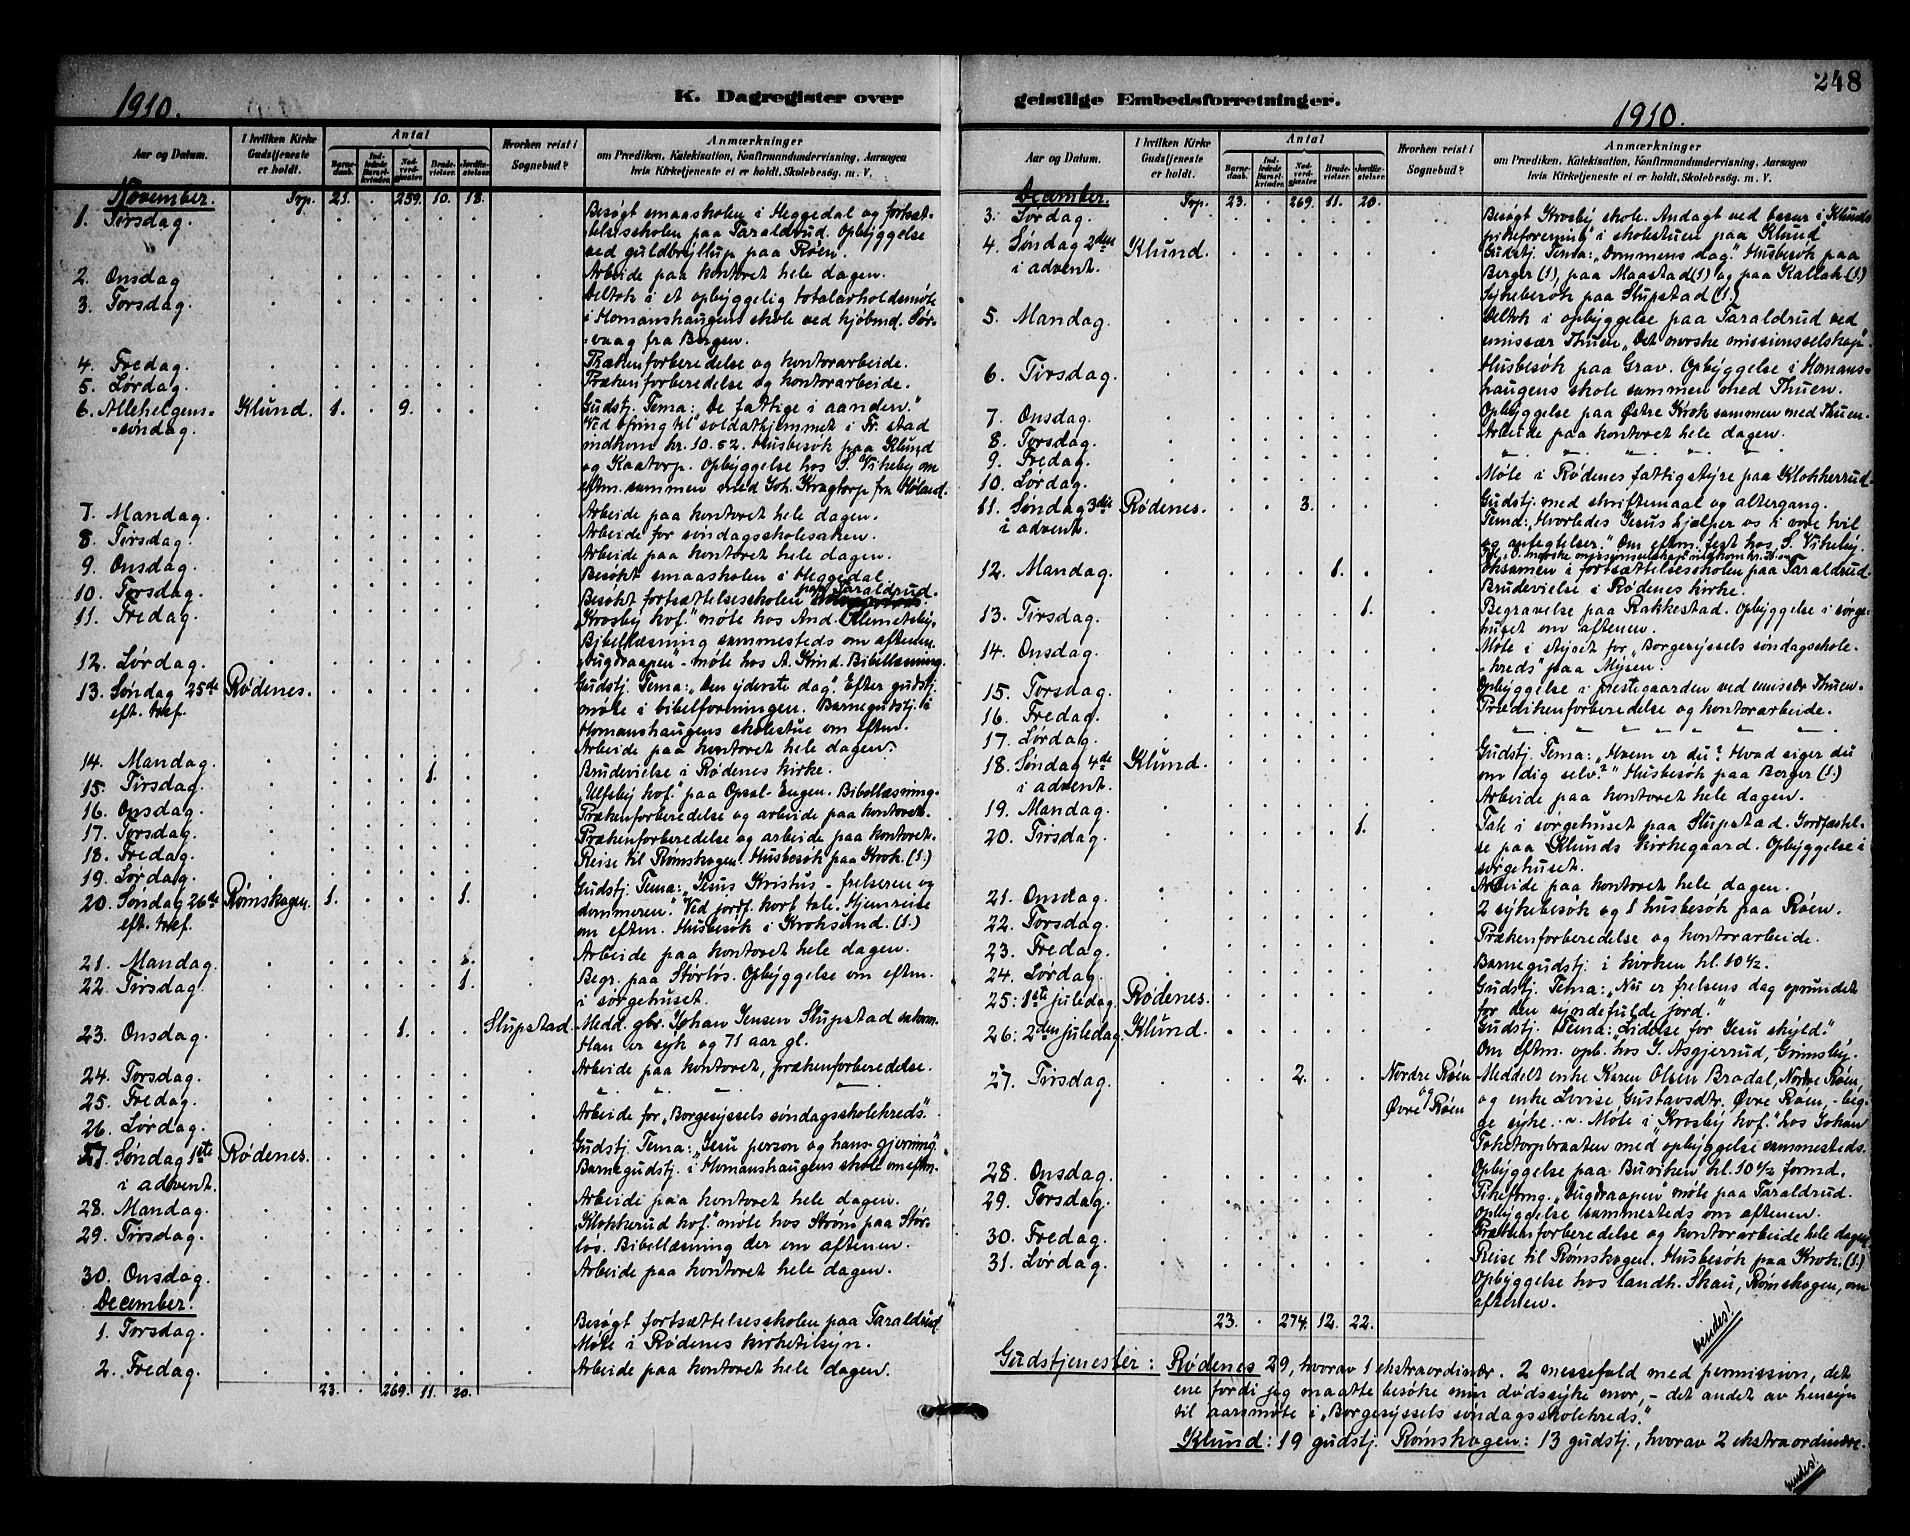 248
K. Dagregister over geistlige Embedsforretninger.
1910.
Aar og Datum.
I hvilken Kirke Gudstjeneste er holdt.
Antal
Barnedaab.
Indledede Barselkvinder.
Nadverdgjæster.
Brudevielser.
Jordfæstelser.
Hvorhen reist i Sognebud?
Anmærkninger
om Prædiken, Katekisation, Konfirmandundervisning, Aarsagen
hvis Kirketjeneste ei er holdt, Skolebesøg. m. V.
November. Trp. 21. . 259. 10. 18.
1. Tirsdag. Besøgt smaaskolen i Heggedal og fortsæt-
telsesskolen paa Taraldrud. Opbyggelse
ved guldbryllup paa Røen.
2. Onsdag Arbeide paa kontoret hele dagen.
3. Torsdag. Deltok i et opbyggelig totalavholdsmøte
i Homanshaugens skole ved kjøbmd. Sør-
vaag fra Bergen.
4. Fredag. Prækenforberedelse og kontorarbeide.
5. Lørdag. Prækenforberedelse og kontorarbeide.
6. Allehelgens- Klund. 1. . 9. Gudstj. Tema: „De fattige i aanden."
søndag. Ved ofring til soldathjemmet i Fr. stad
indkom kr. 10.52. Husbesøk paa Klund
og Kaatorp. Opbyggelse hos S. Vikeby om
eftm. sammen med Joh. Kragtorp fra Høland.
7. Mandag. Arbeide paa kontoret hele dagen.
8. Tirsdag. Arbeide for søndagsskolesaken.
9. Onsdag. Arbeide paa kontoret hele dagen.
10. Torsdag. Besøkt smaaskolen i Heggedal
11. Fredag. Besøkt fortsættelsesskolen paa Taraldrud.
„Krosby kof." møte hos And. Klemetsby.
Bibellæsning sammesteds om aftenen.
12. Lørdag. „Dugdraapen"-møte hos A. Kind. Bibellæsning.
13. Søndag 25de Rødenes. Gudstj. Tema: „Den yderste dag." Efter gudstj.
eft. tref. møte i bibelforeningen. Barnegudstj. i
Homanshaugens skolestue om eftm.
14. Mandag. Arbeide paa kontoret hele dagen.
15. Tirsdag. 1. Brudevielse i Rødenes kirke.
16. Onsdag. „Ulfsby kof." paa Opsal-Engen. Bibellæsning.
17. Torsdag. Prækenforberedelse og arbeide paa kontoret.
18. Fredag. Prækenforberedelse og arbeide paa kontoret.
19. Lørdag. Reise til Rømskogen. Husbesøk paa Krok. (1.)
20. Søndag 26de Rømskogen. 1. 1. Gudstj. Tema: „Jesus Kristus, - frelseren og
eft. tref. dommeren." Ved jordf. kort tale. Hjemreise
om eftm. Husbesøk i Kroksund. (1.)
21. Mandag. Arbeide paa kontoret hele dagen.
22. Tirsdag. 1. Begr. paa Störløs. Opbyggelse om eftm.
i sørgehuset.
23. Onsdag. 1. Slupstad. Medd. gbr. Johan Jensen Slupstad sakram.
Han er syk og 71 aar gl.
24. Torsdag. Arbeide paa kontoret, prækenforberedelse.
25. Fredag. " " "
26. Lørdag. Arbeide for „Borgesyssels søndagsskolekreds."
27. Søndag 1ste Rødenes. Gudstj. Tema: „Jesu person og hans gjerning."
i advent. Barnegudstj. i Homanshaugens skole om eftm.
28. Mandag. Arbeide paa kontoret hele dagen.
29. Tirsdag. „Klokkerud kof." møte hos Strøm paa Stør-
løs. Bibellæsning der om aftenen.
30. Onsdag. Arbeide paa kontoret hele dagen.
December.
1. Torsdag. Besøgt fortsættelsesskolen paa Taraldrud.
Møte i Rødenes kirketilsyn.
2. Fredag. Arbeide paa kontoret hele dagen.
23. . 269. 11. 20.
1910.
Aar og Datum.
I hvilken Kirke Gudstjeneste er holdt.
Antal
Barnedaab.
Indledede Barselkvinder.
Nadverdgjæster.
Brudevielser.
Jordfæstelser.
Hvorhen reist i Sognebud?
Anmærkninger
om Prædiken, Katekisation, Konfirmandundervisning, Aarsagen
hvis Kirketjeneste ei er holdt, Skolebesøg. m. V.
December. Trp. 23. . 269. 11. 20.
3. Lørdag. Besøgt Krosby skole. Andagt ved basar i „Klunds
pikeforening" i skolestuen paa Klund
4. Søndag 2den Klund. Gudstj. Tema: „Dommens dag". Husbesøk paa
i advent. Berger (1), paa Maastad (1) og paa Kallak (1.)
Sykebesøk paa Slupstad (1.)
5. Mandag. Deltok i opbyggelse paa Taraldrud ved
emissær Thuen, „Det norske missionsselskap".
6. Tirsdag. Husbesøk paa Grav. Opbyggelse i Homans-
haugens skole sammen med Thuen.
7. Onsdag. Opbyggelse paa Østre Krok sammen med Thuen.
8. Torsdag. Arbeide paa kontoret hele dagen.
9. Fredag. " " " "
10. Lørdag. Møte i Rødenes fattigstyre paa Klokkerrud.
11. Søndag 3die Rødenes. 3. Gudstj. med skriftemaal og altergang.
i advent. Tema: „Hvorledes Jesus hjælper os i vore tvil
og anfegtelser." Om eftm. fest hos S. Vikeby.
12. Mandag. 1. Eksamen i fortsættelsesskolen paa Taraldrud.
Brudevielse i Rødenes kirke.
13. Tirsdag. 1. Begravelse paa Rakkestad. Opbyggelse i sørge-
huset om aftenen.
14. Onsdag. Møte i styret for „Borgesyssels søndagsskole-
kreds" paa Mysen.
15. Torsdag. Opbyggelse i prestegaarden ved emisær Thuen.
16. Fredag. Prædikenforberedelse og kontorarbeide.
17. Lørdag. " " " "
18. Søndag 4de Klund. Gudstj. Tema: „Hvem er du? Hvad siger du
i advent. om dig selv?" Husbesøk paa Berger (1.)
19. Mandag. Arbeide paa kontoret hele dagen.
20. Tirsdag. 1. Tale i sørgehuset paa Slupstad. Jordfæstel-
se paa Klunds kirkegaard. Opbyggelse i
sørgehuset.
21. Onsdag. Arbeide paa kontoret hele dagen.
22. Torsdag. 2 sykebesøk og 1 husbesøk paa Røen.
23. Fredag. Prækenforberedelse og kontorarbeide.
24. Lørdag. Barnegudstj. i kirken kl. 10½.
25: 1ste juledag. Rødenes. Gudstj. Tema: „Nu er frelsens dag oprundet
for den syndefulde jord."
26: 2den juledag. Klund. Gudstj. Tema: „Lidelse for Jesu skyld."
Om eftm. opb. hos J. Asgjerrud, Grimsby.
27. Tirsdag. 2. Nordre Røen og Øvre Røen Meddelt enke Karen Olsen Bradal, Nordre Røen,
og enke Lovise Gustavsdtr. Øvre Røen, - beg-
ge syke. - Møte i „Krosby kof." hos Johan
Toketorpbraaten med opbyggelse sammesteds.
28. Onsdag. Opbyggelse paa Buviken kl. 10½ formd.
29. Torsdag. Pikefrng. „Dugdraapen" møte paa Taraldrud.
opbyggelse sammesteds om aftenen.
30. Fredag. Prækenforberedelse og kontorarbeide hele dagen
31. Lørdag. Reise til Rømskogen. Husbesøk paa Krok. (1.)
Opbyggelse hos landh. Skau, Rømskogen, om
aftenen.
23. . 274. 12. 22.
vendes!
Gudstjenester: Rødenes 29, hvorav 1 ekstraordinær. 2 messefald med permission, det
ene fordi jeg maatte besøke min dødssyke mor, - det andet av hensyn
til aarsmøte i „Borgesyssels søndagsskolekreds."
Klund: 19 gudstj. Rømskogen: 13 gudstj., hvorav 2 ekstraordinære.
vendes!